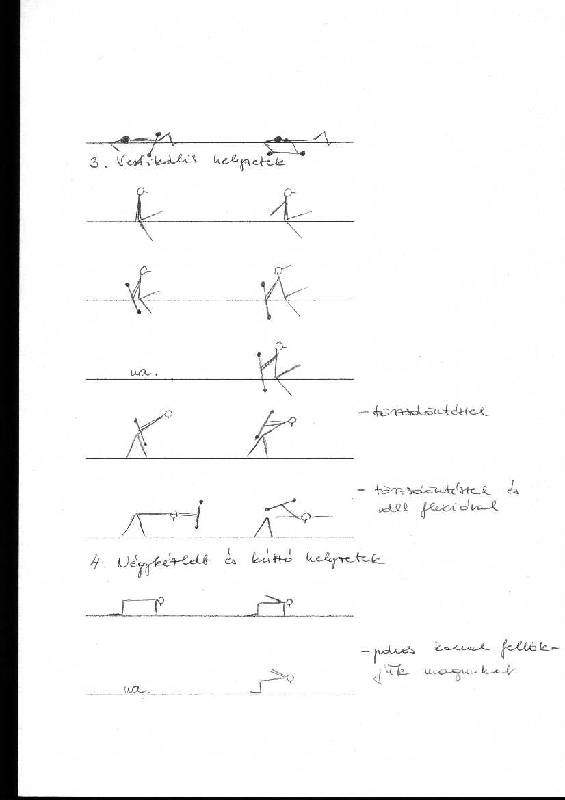 3. Vertikális helyzetek
ua.
- törzsdöntéssel
- törzsdöntéssel és
váll flexióval
4. Négykézláb és kúszó helyzetek
- páros karral fellök-
jük magunkat
ua.